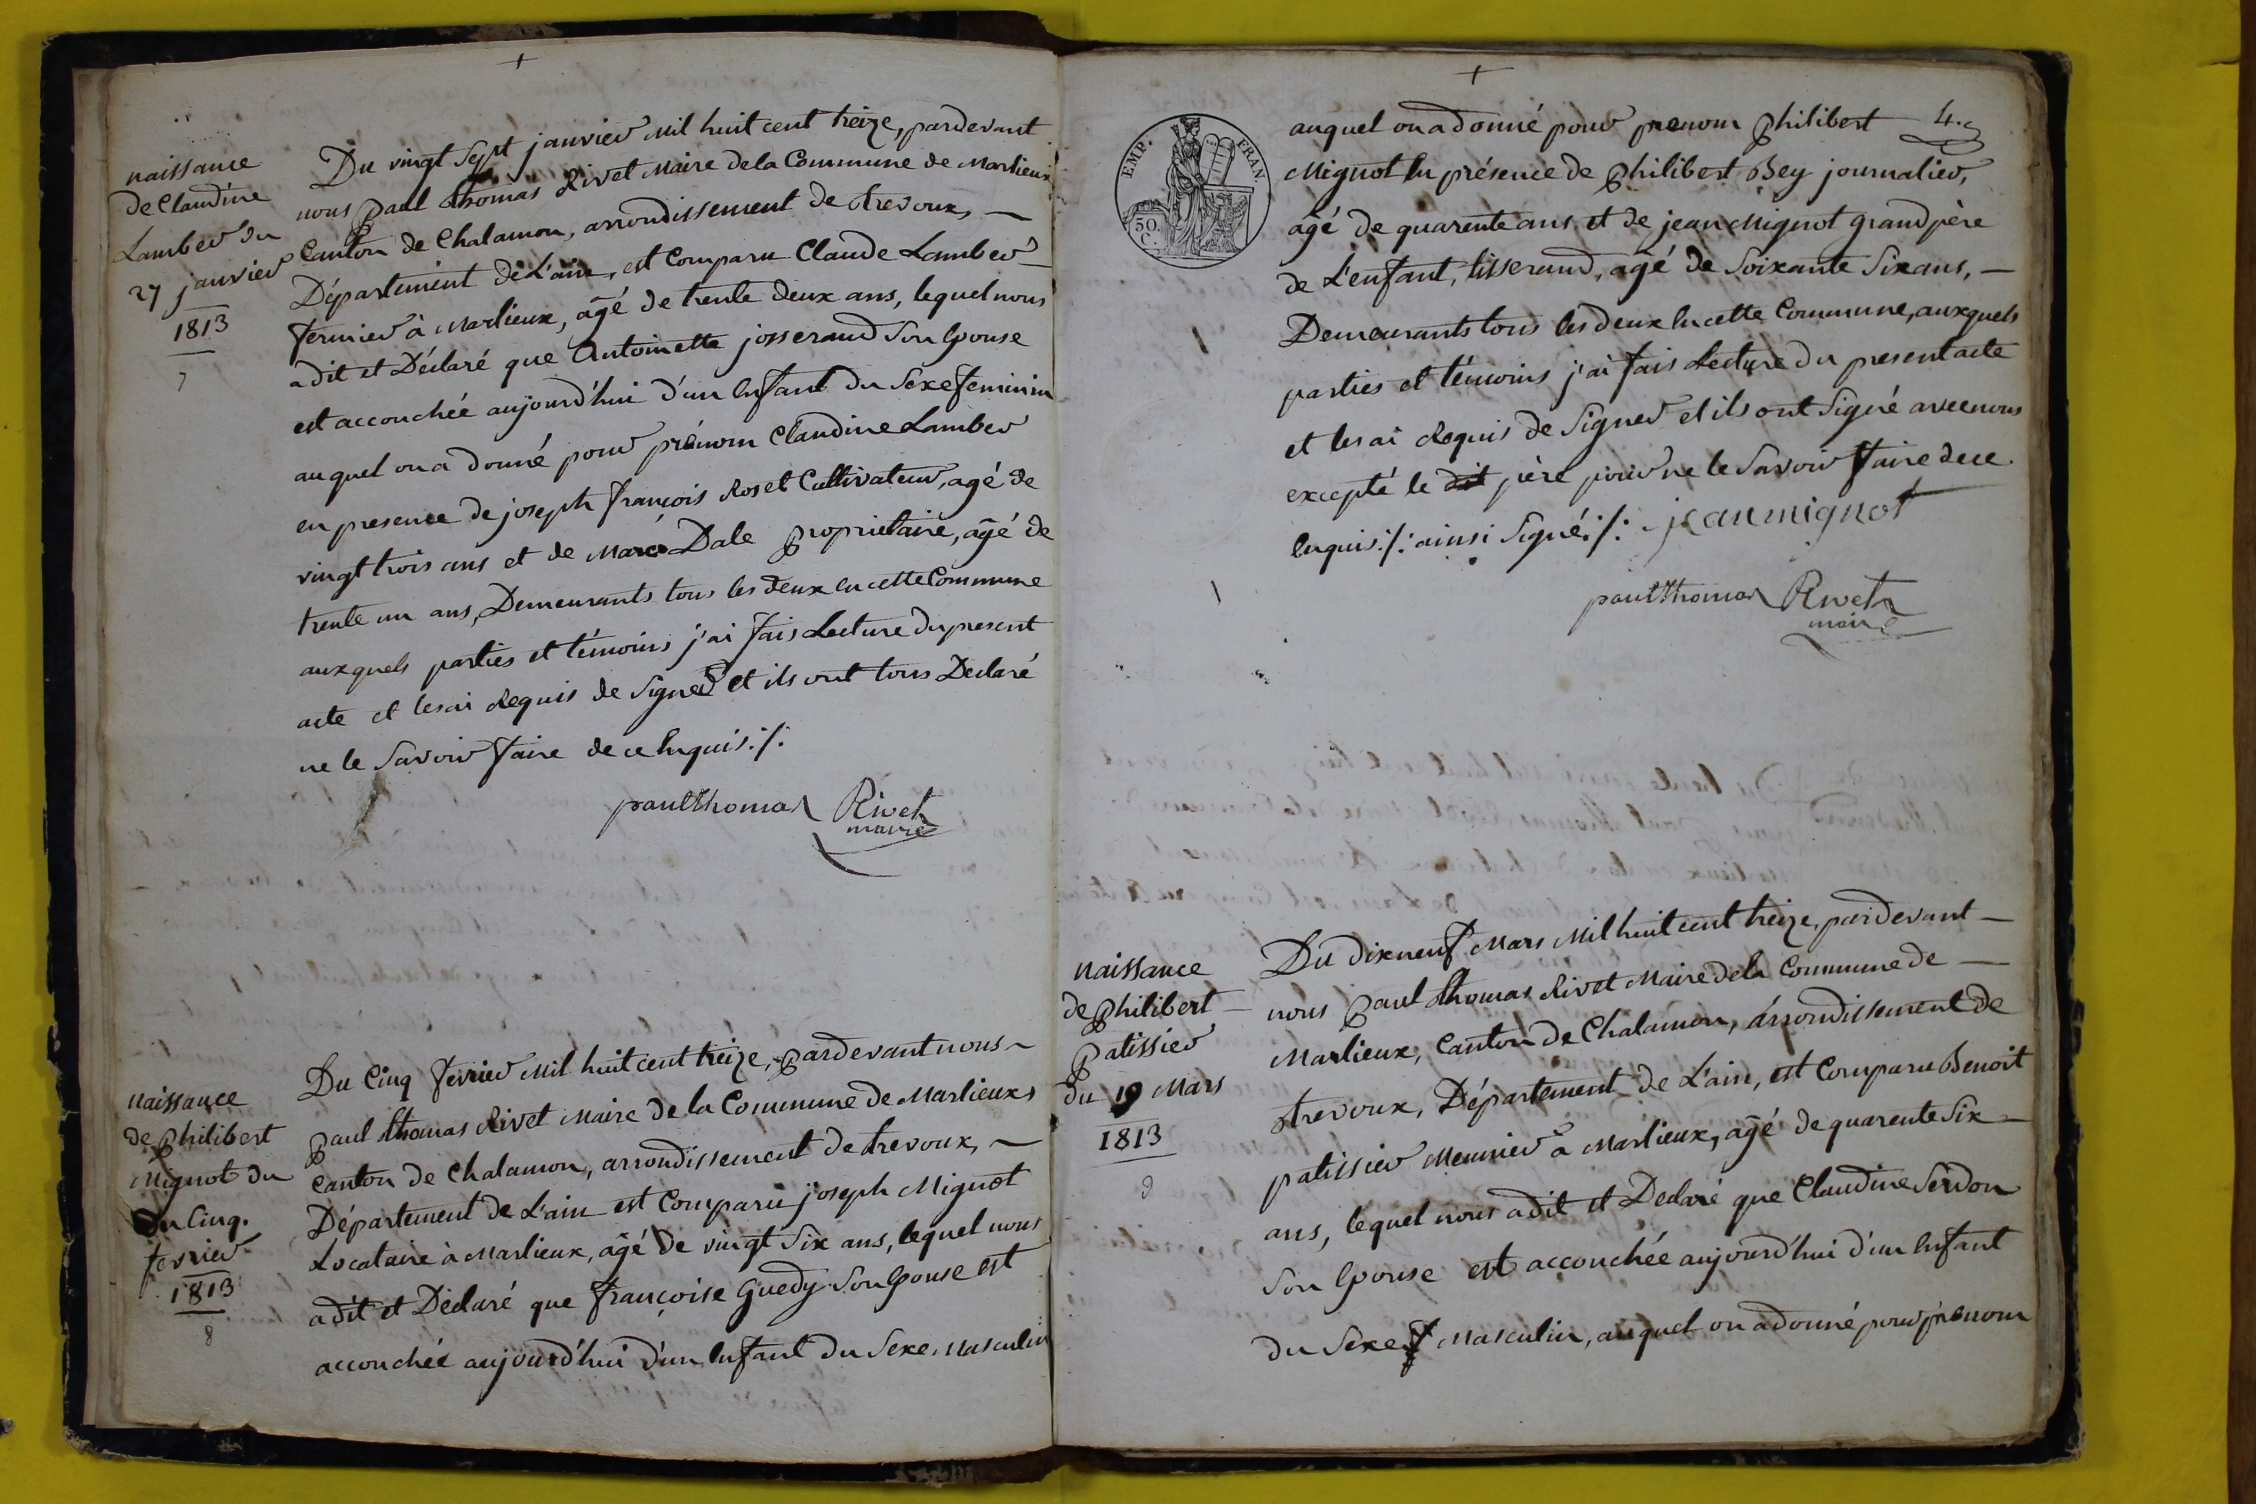 naissance
de Claudine
Lamber du
27 janvier
1813
7
Du vingt Sept janvier Mil huit cent treize, pardevant
nous paul thomas Rivet Maire de la Commune de Marlieux
Canton de Chalamon, arrondissement de trevoux, —
Département de L'ain, est Comparu Claude Lamber
fermier à Marlieux, agé de trente deux ans, lequel nous
a dit et Déclaré que Antoinette josserand Son Epouse
est accouchée aujourd'hui d'un Enfant du Sexe feminin
auquel on a donné pour prénom Claudine Lamber
en presence de joseph françois Roset Cultivateur, agé de
vingt trois ans et de Marc Dale proprietaire, agé de
trente un ans, Demeurants tous les deux en cette Commune
auxquels parties et témoins j'ai fais Lecture du present
acte et les ai Requis de Signer et ils ont tous Declaré
ne le Savoir faire de ce Enquis ./.
paul thomas Rivet
maire
naissance
de philibert
Mignot du
du Cinq.
fevrier
1813
8
Du Cinq fevrier Mil huit cent treize, pardevant nous
paul thomas Rivet Maire de la Commune de Marlieux
Canton de Chalamon, arrondissement de trevoux, —
Département de L'ain est Comparu joseph Mignot
Locataire à Marlieux, agé de vingt Six ans, lequel nous
a dit et Déclaré que françoise Guedy Son Epouse est
accouchée aujourd'hui d'un Enfant du Sexe Masculin
4.
EMP. FRAN.
50.
C.
auquel on a donné pour prenom philibert
Mignot En présence de philibert Bey journalier,
agé de quarente ans et de jean Mignot grand père
de L'enfant, tisserand, agé de Soixante Six ans, —
Demeurants tous les deux En cette Commune, auxquels
parties et témoins j'ai fais Lecture du present acte
et les ai Requis de Signer et ils ont Signé avec nous
excepté le dit père pour ne le Savoir faire de ce
Enquis ./. ainsi Signé ./. jean mignot
paul thomas Rivet
maire
naissance
de philibert
patissier
du 19 Mars
1813
9
Du dix neuf Mars Mil huit cent treize, pardevant —
nous paul thomas Rivet Maire de la Commune de —
Marlieux, Canton de Chalamon, arrondissement de
trevoux, Département de L'ain, est Comparu Benoit
patissier Meunier à Marlieux, agé de quarente Six —
ans, lequel nous a dit et Declaré que Claudine Serdon
Son Epouse est accouchée aujourd'hui d'un Enfant
du Sexe Masculin, auquel on a donné pour prenom